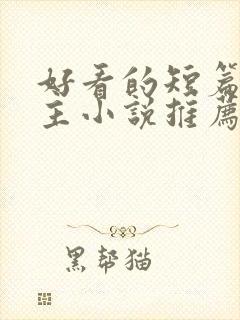 好看的短篇
主小说推薦
黑帮猫